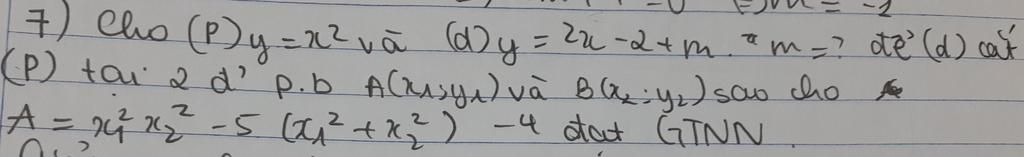 =0 (=) m = -1
7) Cho (P) y = x² và (d) y = 2x - 2 + m. * m = ? để (d) cắt
(P) tại 2 đ' p.b A(x₁; y₁) và B(x₂; y₂) sao cho
A = x₁² x₂² - 5 (x₁² + x₂²) - 4 đạt GTNN.